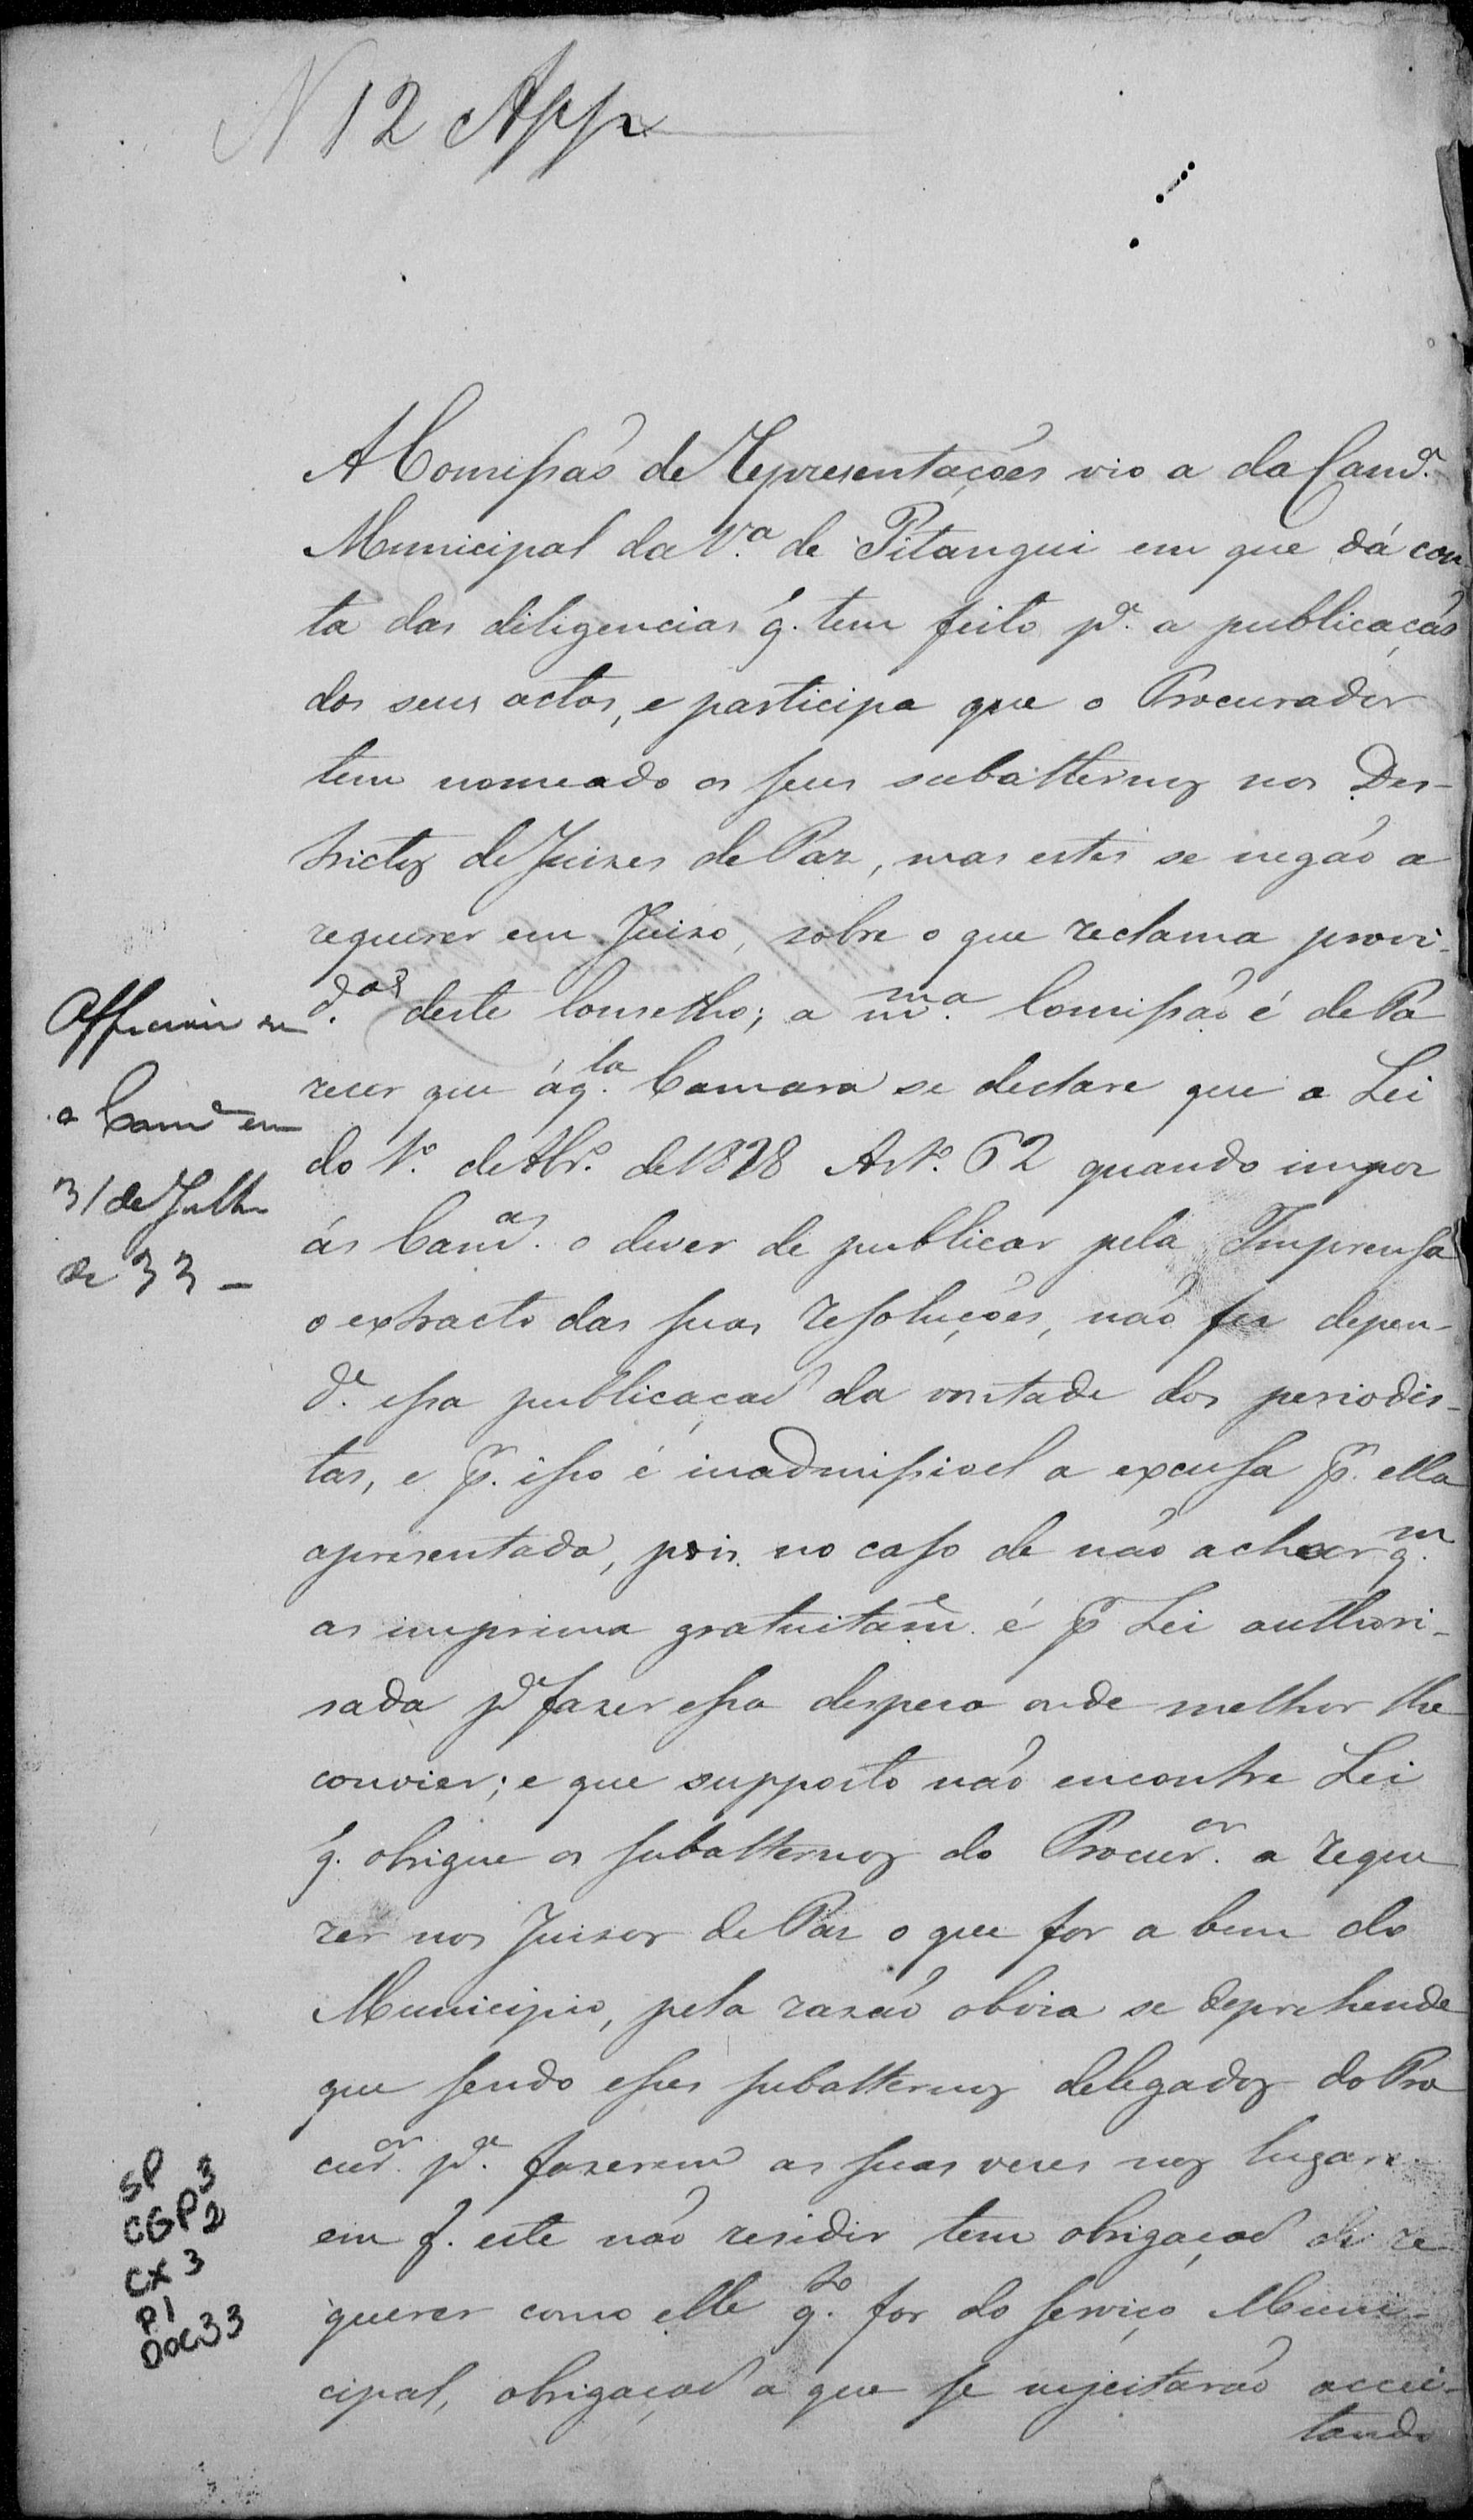 N 12 App
A Comissaõ de Representações vio a da Camª.
Municipal da Vª. de Pitangui em que dá con
ta das diligencias q̃. tem feito pª. a publicaçaõ
dos seus actos, e participa que o Procurador
tem nomeado os seus subalternos nos Des-
trictos de Juizes de Paz, mas estes se negaõ a
requerer em Juizo, sobre o que reclama provi-
d.as deste Conselho; a m.ma Comissaõ é de Pa
recer que áq.la Camara se declare que a Lei
do 1º. de 8br.º de 1828 Artº. 62 quando impoz
ás Cam.as o dever de publicar pela Imprensa
o extracto das suas resoluções, naõ fez depen-
d.e essa publicaçaõ da vontade dos periodis-
tas, e p.r isso é inadmissivel a excusa p.r ella
apresentada, pois no caso de naõ achar q.m
as imprima gratuitam.e é p.r Lei authori-
sada pª fazer essa despeza onde melhor lhe
convier; e que supposto naõ encontre Lei
q̃. obrigue os subalternos do Procur.or a reque
rer nos Juizos de Paz o que for a bem do
Municipio, pela razaõ obvia se deprehende
que sendo esses subalternos delegados do Pro
cud.or pª. fazerem as suas vezes nos lugares
em q̃. este naõ residir tem obrigaçaõ de re
querer como elle q.to for do serviço Muni-
cipal, obrigaçaõ a que se sujeitaraõ accei-
tando
Officiou se
a Camª em
31 de Julho
de 33 –
SP
CGP 3
CX 3 2
P1
DOC33